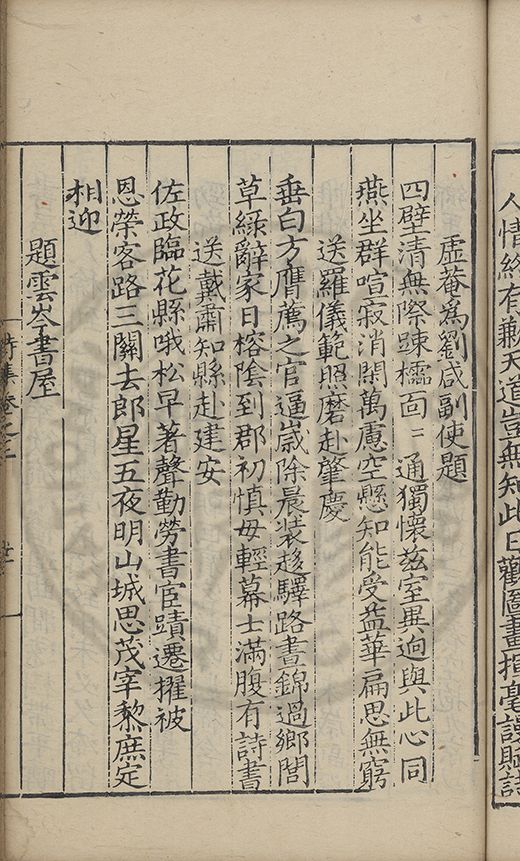 人情終有歉天道豈無知此日觀圖畫揮毫謾賦詩
虛菴爲劉咸副使題
四壁清無際踈櫺面〻通獨懷茲室異逈與此心同
燕坐群喧寂消閑萬慮空懸知能受益華扁思無窮
送羅儀範照磨赴肇慶
垂白方膺薦之官逼歲除晨装趍驛路晝錦過鄉閭
草綠辭家日榕陰到郡初慎毋輕幕士滿腹有詩書
送戴肅知縣赴建安
佐政臨花縣哦松早著聲勤勞書宦蹟遷擢被
恩榮客路三關去郎星五夜明山城思茂宰黎庶定
相迎
題雲岑書屋
詩集卷之三
廿一